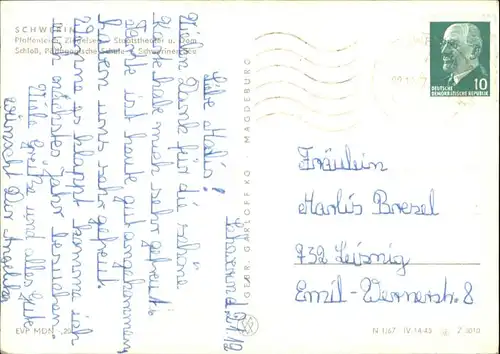 SCHWERIN
Pfaffenteich, Ziegelsee, Staatstheater u. Dom
Schloß, Pädagogische Schule, Schweriner See
Liebe Marlis!
Vielen Dank für die schöne
Karte habe mich sehr gefreut.
Karte ist heute gut angekommen,
haben uns sehr gefreut.
Wenn es klappt komme ich
im nächsten Jahr besuchen.
Viele Grüße und alles Gute
wünscht Dir Angelika
GEBR. GARLOFF KG · MAGDEBURG
DEUTSCHE
DEMOKRATISCHE REPUBLIK
10
Fräulein
Marlis Bresel
732 Leipzig
Emil-Wernerstr. 8
EVP MDN -,20
N 1/67 IV-14-45